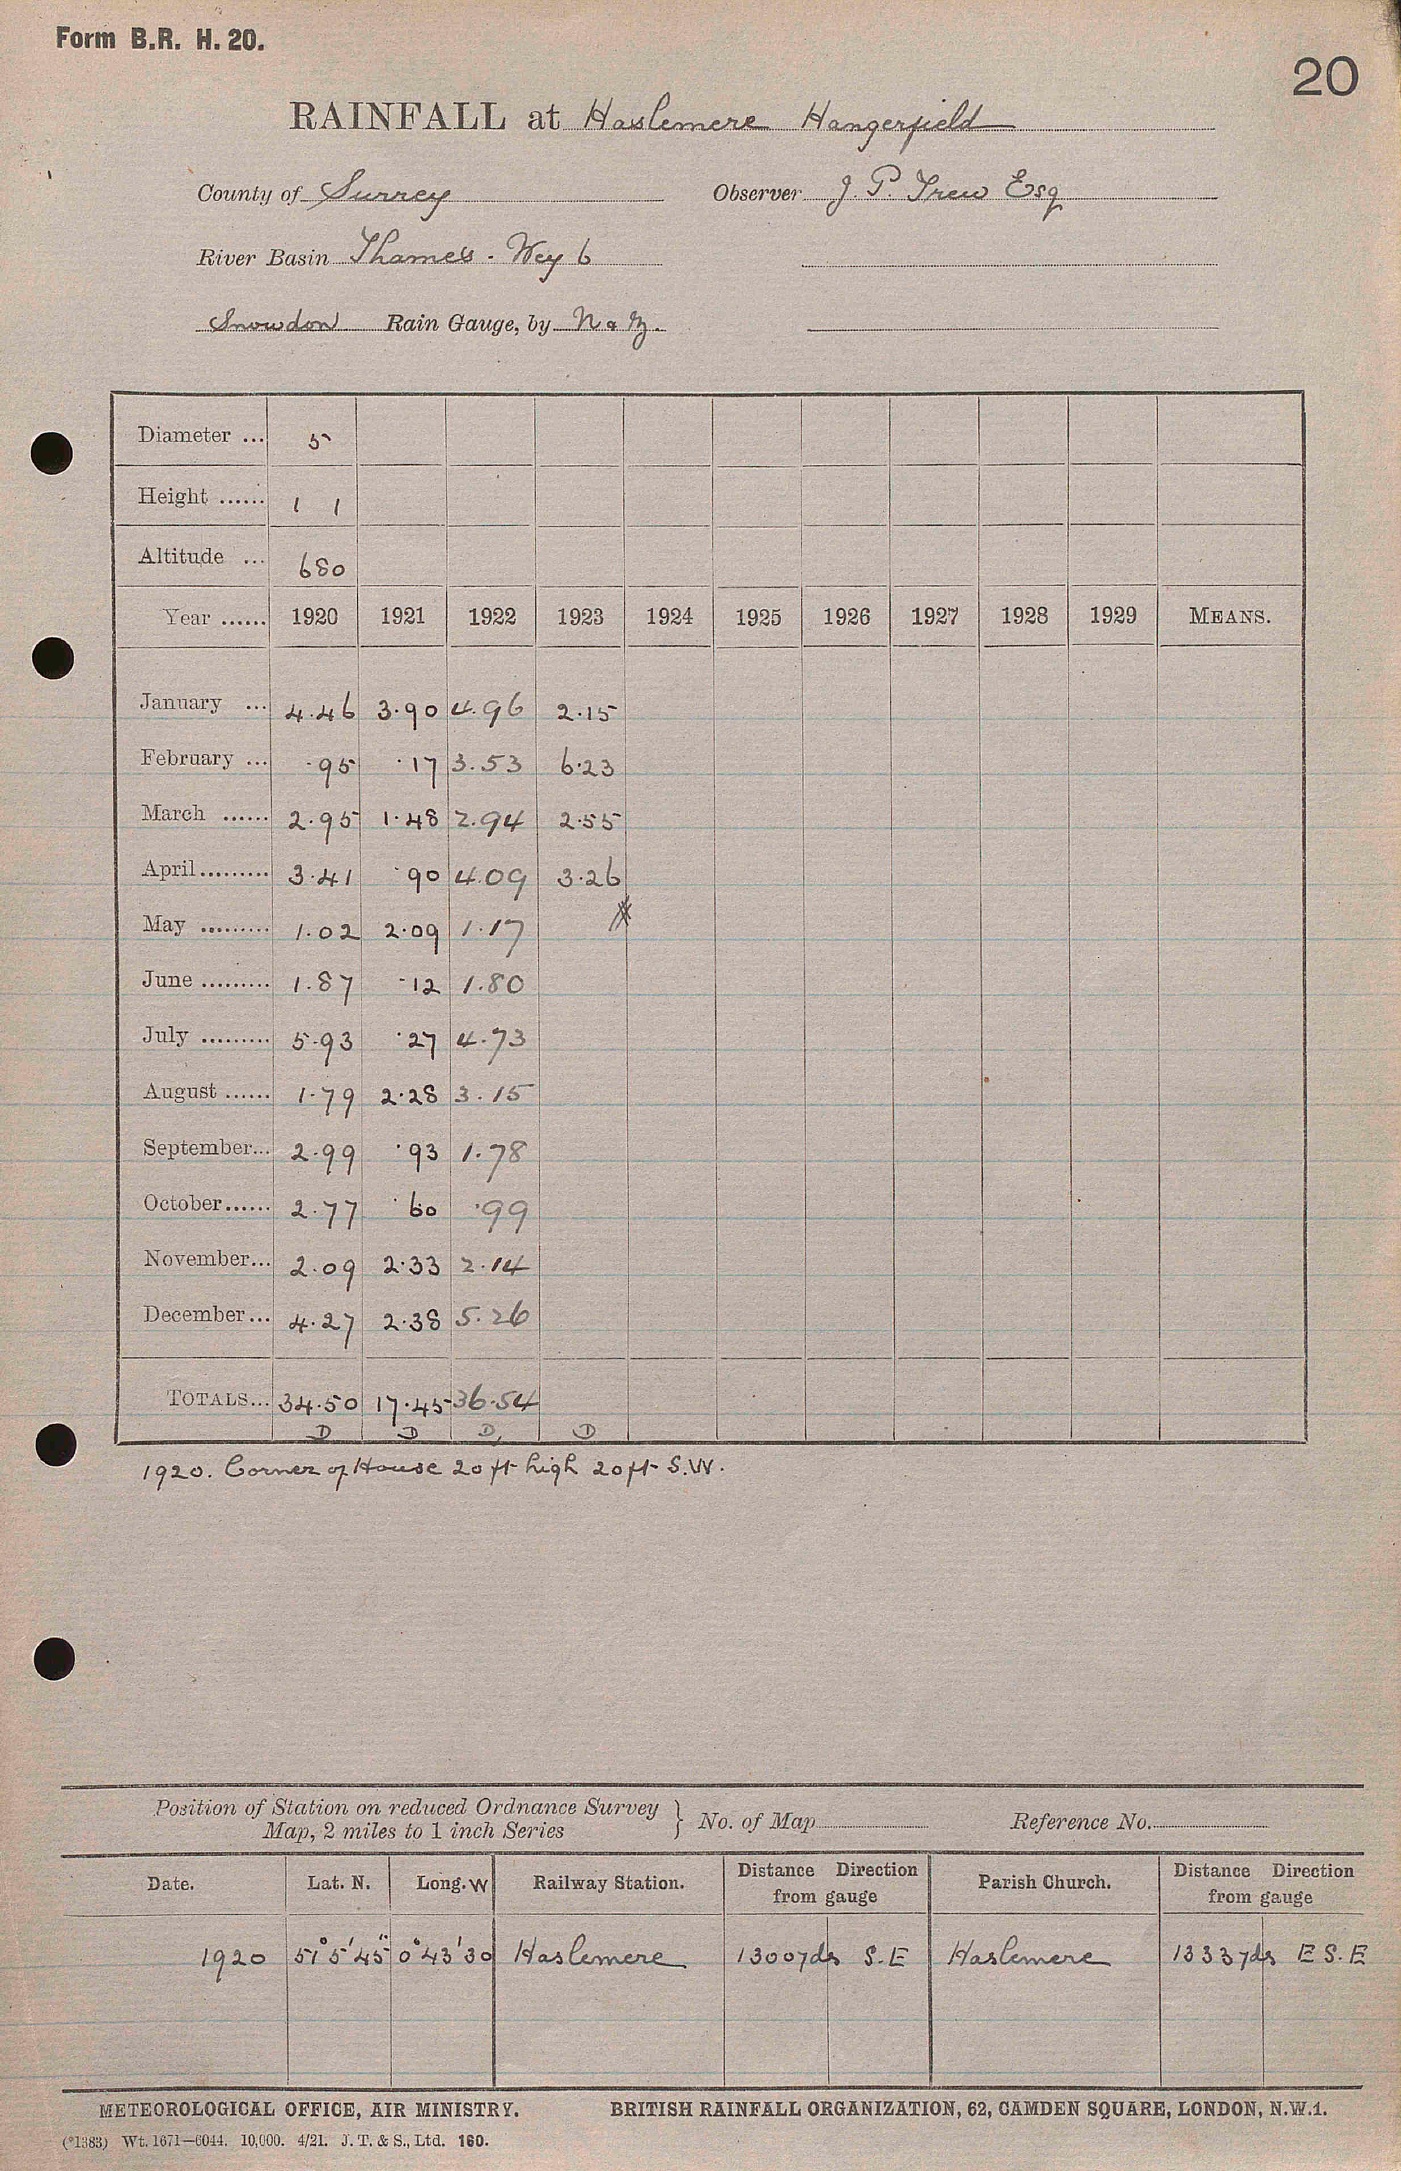 Form B.R. H. 20.
20
RAINFALL at Haslemere Hangerfield
County of Surrey Observer J. P. Trew Esq
River Basin Thames - Wey 6
Snowdon Rain Gauge, by N & Z.
Diameter ... 5
Height ...... 1 1
Altitude ... 680
Year ...... 1920 1921 1922 1923 1924 1925 1926 1927 1928 1929 MEANS.
January ... 4.46 3.90 4.96 2.15
February ... .95 .17 3.53 6.23
March ...... 2.95 1.48 2.94 2.55
April ......... 3.41 .90 4.09 3.26
May ......... 1.02 2.09 1.17
June ......... 1.87 .12 1.80
July ......... 5.93 .27 4.73
August ...... 1.79 2.28 3.15
September... 2.99 .93 1.78
October...... 2.77 .60 .99
November... 2.09 2.33 2.14
December... 4.27 2.38 5.26
TOTALS... 34.50 17.45 36.54
D D D D
1920. Corner of House 20 ft high 20 ft S.W.
Position of Station on reduced Ordnance Survey
Map, 2 miles to 1 inch Series } No. of Map Reference No.
Date. Lat. N. Long. W Railway Station. Distance Direction from gauge Parish Church. Distance Direction from gauge
1920 51° 5' 45" 0° 43' 30 Haslemere 1300 yds S.E Haslemere 1333 yds E S.E
METEOROLOGICAL OFFICE, AIR MINISTRY. BRITISH RAINFALL ORGANIZATION, 62, CAMDEN SQUARE, LONDON, N.W.1.
(*1383) Wt. 1671—6044. 10,000. 4/21. J. T. & S., Ltd. 160.